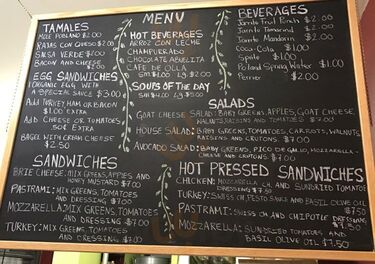 MENU
TAMALES
MOLE POBLANO $2.00
RAJAS CON QUESO $2.00
SALSA VERDE $1.00
BACON AND CHEESE
$2.00
EGG SANDWICHES
ORGANIC EGG WITH
A SPECIAL SAUCE $3.00
ADD TURKEY HAM OR BACON
$1.00 EXTRA
ADD CHEESE OR TOMATOES
50¢ EXTRA
BAGEL WITH CREAM CHEESE
$2.50
HOT BEVERAGES
ARROZ CON LECHE
CHAMPURRADO
CHOCOLATE ABUELITA
CAFE DE OLLA
SM. $1.00 LG. $2.00
SOUPS OF THE DAY
SM $4.00 LG $5.00
BEVERAGES
Jarrito Fruit Punch $2.00
Jarrito Tamarind $2.00
Jarrito Mandarin $2.00
Coca-Cola $1.00
Sprite $1.00
Poland Spring Water $1.00
Perrier $2.00
SALADS
GOAT CHEESE SALAD: BABY GREENS, APPLES, GOAT CHEESE,
WALNUTS, RAISINS AND TOMATOES $7.00
HOUSE SALAD: BABY GREENS, TOMATOES, CARROTS, WALNUTS,
RAISINS AND CROUTONS. $7.00
AVOCADO SALAD: BABY GREENS, PICO DE GALLO, MOZZARELLA
CHEESE AND CROUTONS $7.00
SANDWICHES
BRIE CHEESE: MIX GREENS, APPLES AND
HONEY MUSTARD $7.00
PASTRAMI: MIX GREENS, TOMATOES
AND DRESSING $7.00
MOZZARELLA: MIX GREENS, TOMATOES
AND DRESSING $7.00
TURKEY: MIX GREENS, TOMATOES
AND DRESSING $7.00
HOT PRESSED SANDWICHES
CHICKEN: MOZZARELLA CH. AND SUNDRIED TOMATOES
DRESSING $7.50
TURKEY: SWISS CH, PESTO SAUCE AND BASIL OLIVE OIL
$7.50
PASTRAMI: SWISS CH AND CHIPOTLE DRESSING
$7.50
MOZZARELLA: SUNDRIED TOMATOES AND
BASIL OLIVE OIL $7.50